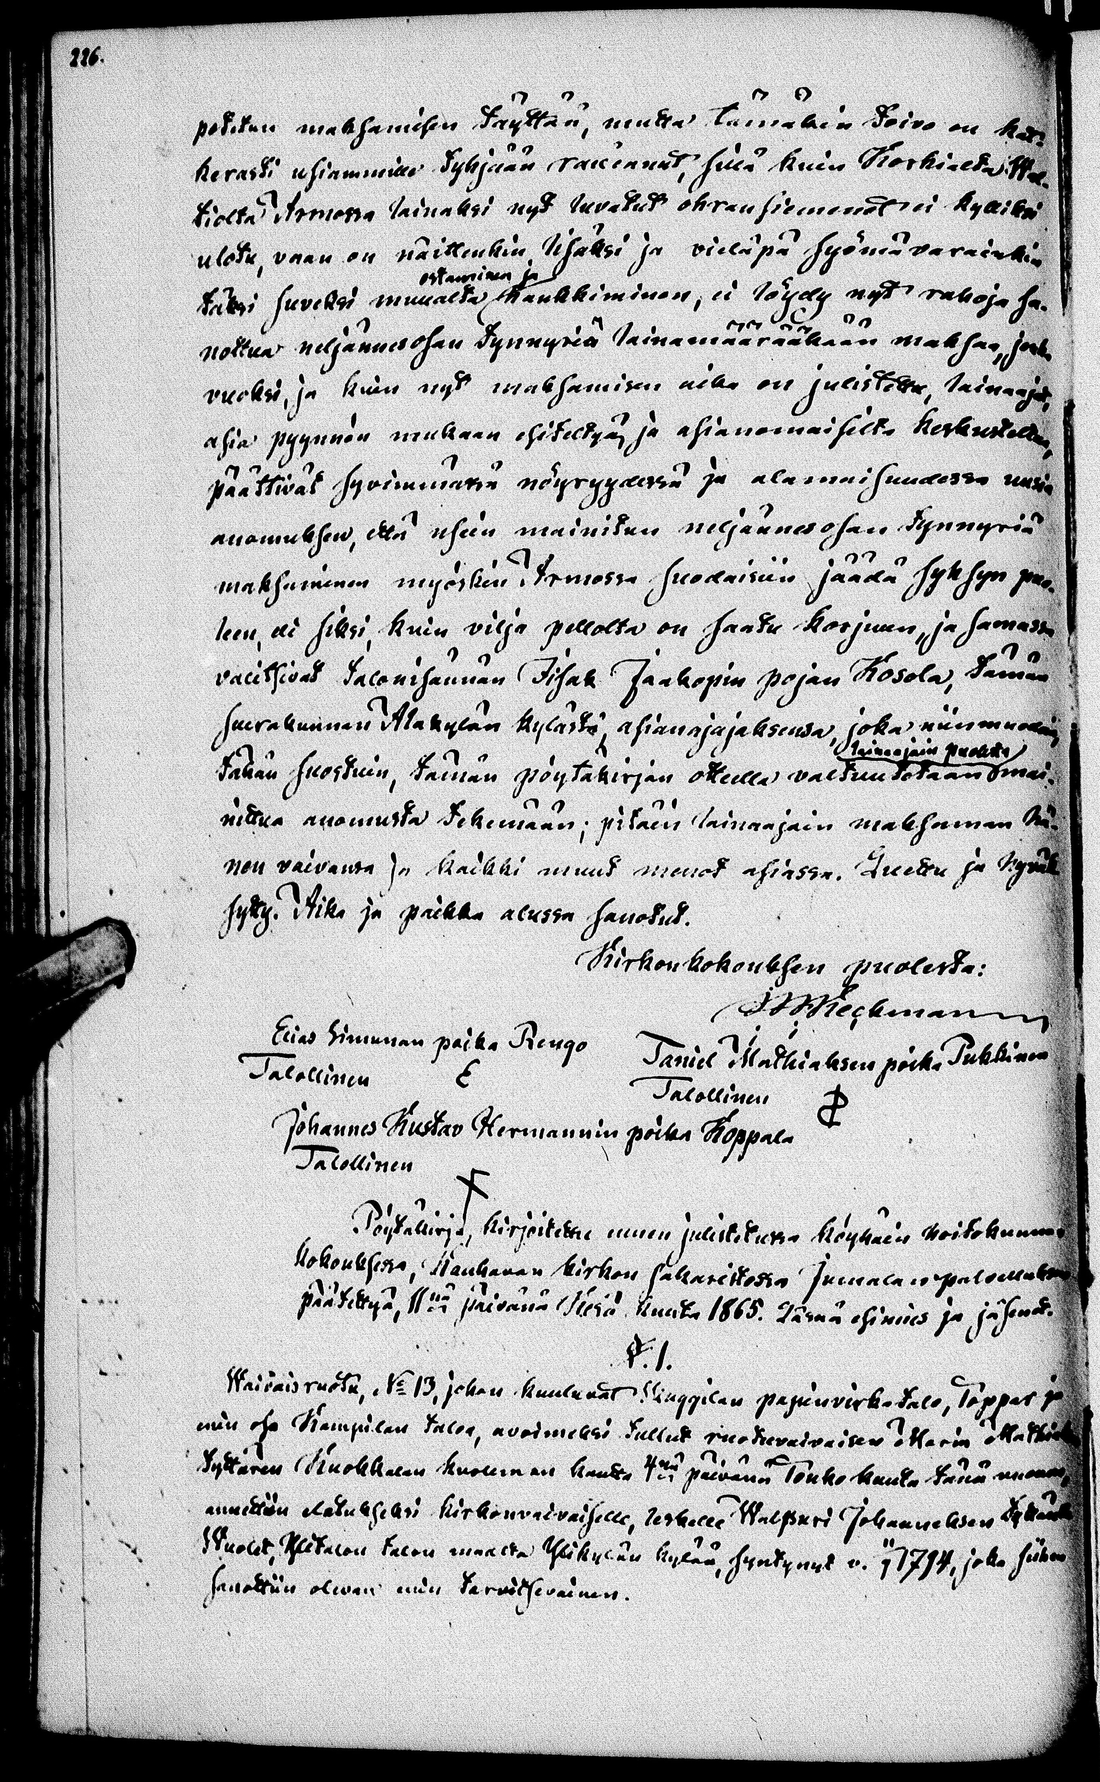 226.
potitun maksamisen täyttää, mutta tämäkin toivo on kat-
kerasti usiammille tyhjään rauennut, sillä kuin Korkialta Wal-
tiolta Armossa lainaksi nyt luvatut ohransiemenet ei kylliksi
ulotu, vaan on näittenkin lisäksi ja vieläpä syömävarainkin
ostaminen ja
täksi suveksi muualta hankkiminen, ei löydy nyt rahoja sa-
nottua neljännesosan tynnyriä lainamäärääkään maksaa, jonka
vuoksi, ja kuin nyt maksamisen aika on julistettu, lainaajat,
asia pyynnön mukaan esiteltyä, ja asianomaisilta keskusteltua,
päättivät syvimmässä nöyryydessä ja alamaisuudessa uusia
anomuksen, että usein mainitun neljännesosan tynnyriä
maksaminen myöskin Armossa suodaisiin jäädä syksyn puo-
leen, eli siksi, kuin vilja pellolta on saatu korjuun, ja samassa
valitsivat talonisännän Iisak Jaakopin pojan Kosola, tämän
seurakunnan Alakylän kylästä, asianajajaksensa, joka niinmuodoin
lainaajain puolesta
tähän suostuin, tämän pöytäkirjan otteella valtuutetaan mai-
nittua anomusta tekemään; pitäin lainaajain maksaman hä-
nen vaivansa ja kaikki muut menot asiassa. Luettu ja hyväk-
sytty. Aika ja paikka alussa sanotut.
Kirkonkokouksen puolesta:
Elias Simunan poika Rengo
Taniel Mathiaksen poika Pukkinen
Talollinen E
Talollinen
Johannes Kustav Hermannin poika Koppala
Talollinen
Pöytäkirja, kirjoitettu ennen julistetussa köyhäin hoitokunnan
kokouksessa, Kauhavan kirkon sakaristossa Jumalanpalveluksen
päätettyä, 11nä päivänä Kesä kuuta 1865. Läsnä esimies ja jäsenet.
§. 1.
Waivaisruotu, No 13, johon kuuluvat papinvirkatalo, Toppar ja
min osa Kampilan taloa, avoimeksi tullut ruotuvaivaisen Maria Mathiak
tyttären Kuokkalan kuoleman kautta 4nä päivänä Touko kuuta tänä vuonna,
annettiin elätukseksi kirkonvaivaiselle, leskelle Walpuri Johanneksen tytär
Wuolet, Ylitalon talon maalta Ylikylän kylää, syntynyt v. 1794, joka siihen
sanottiin olevan min tarvitsevainen.